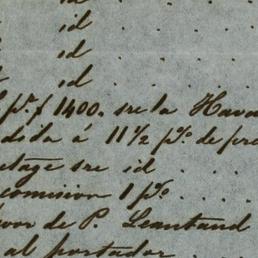 id . . . .
id . . . .
id . . . .
id . . . .
p.r $ 1400. sre la Hava
dida á 11 1/2 p%. de pre
etage sre id . . . .
comision 1 p% . . .
vor de P. Leautaud
al portador . . .